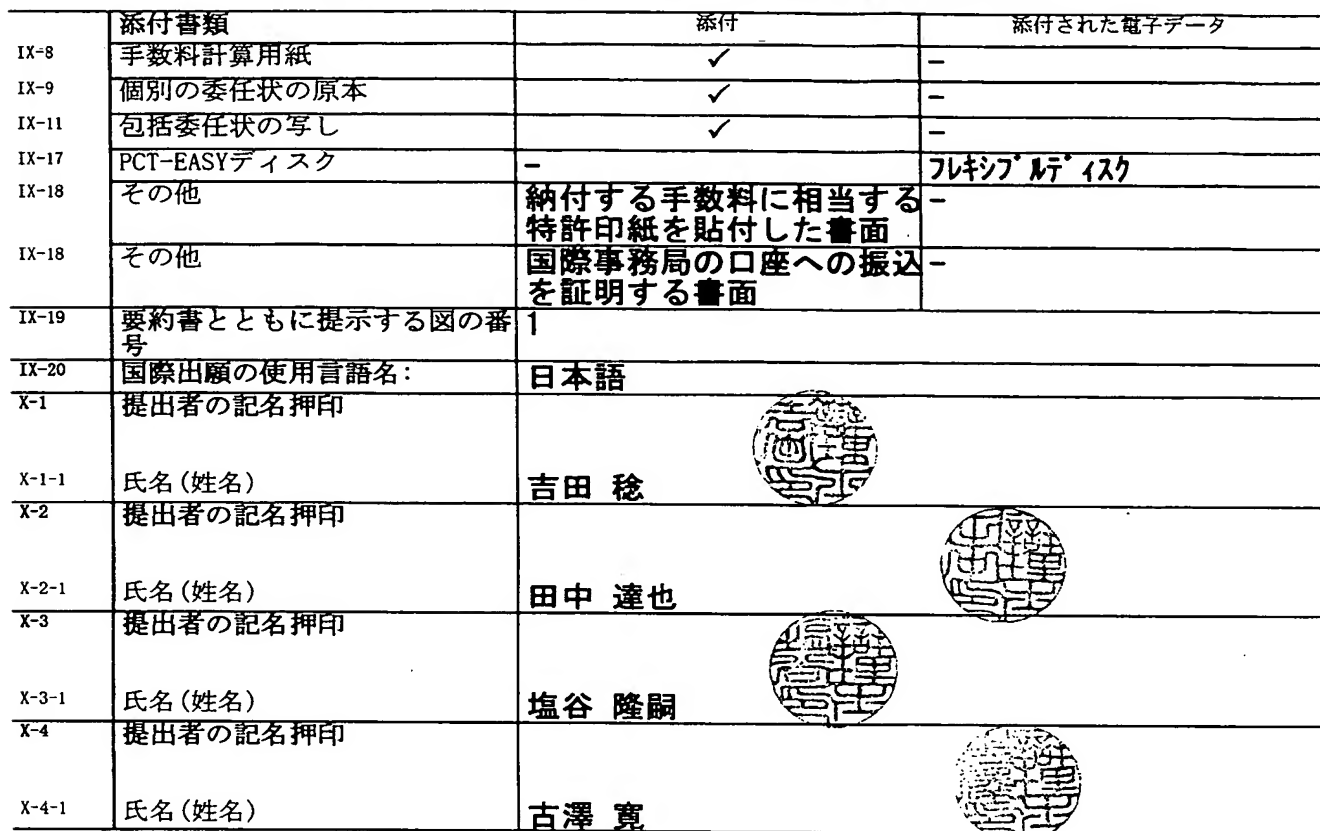 添付書類 添付 添付された電子データ
IX-8 手数料計算用紙 ✓ -
IX-9 個別の委任状の原本 ✓ -
IX-11 包括委任状の写し ✓ -
IX-17 PCT-EASYディスク - フレキシブルディスク
IX-18 その他 納付する手数料に相当する -
特許印紙を貼付した書面
IX-18 その他 国際事務局の口座への振込 -
を証明する書面
IX-19 要約書とともに提示する図の番 1
号
IX-20 国際出願の使用言語名: 日本語
X-1 提出者の記名押印
X-1-1 氏名(姓名) 吉田 稔
X-2 提出者の記名押印
X-2-1 氏名(姓名) 田中 達也
X-3 提出者の記名押印
X-3-1 氏名(姓名) 塩谷 隆嗣
X-4 提出者の記名押印
X-4-1 氏名(姓名) 古澤 寛